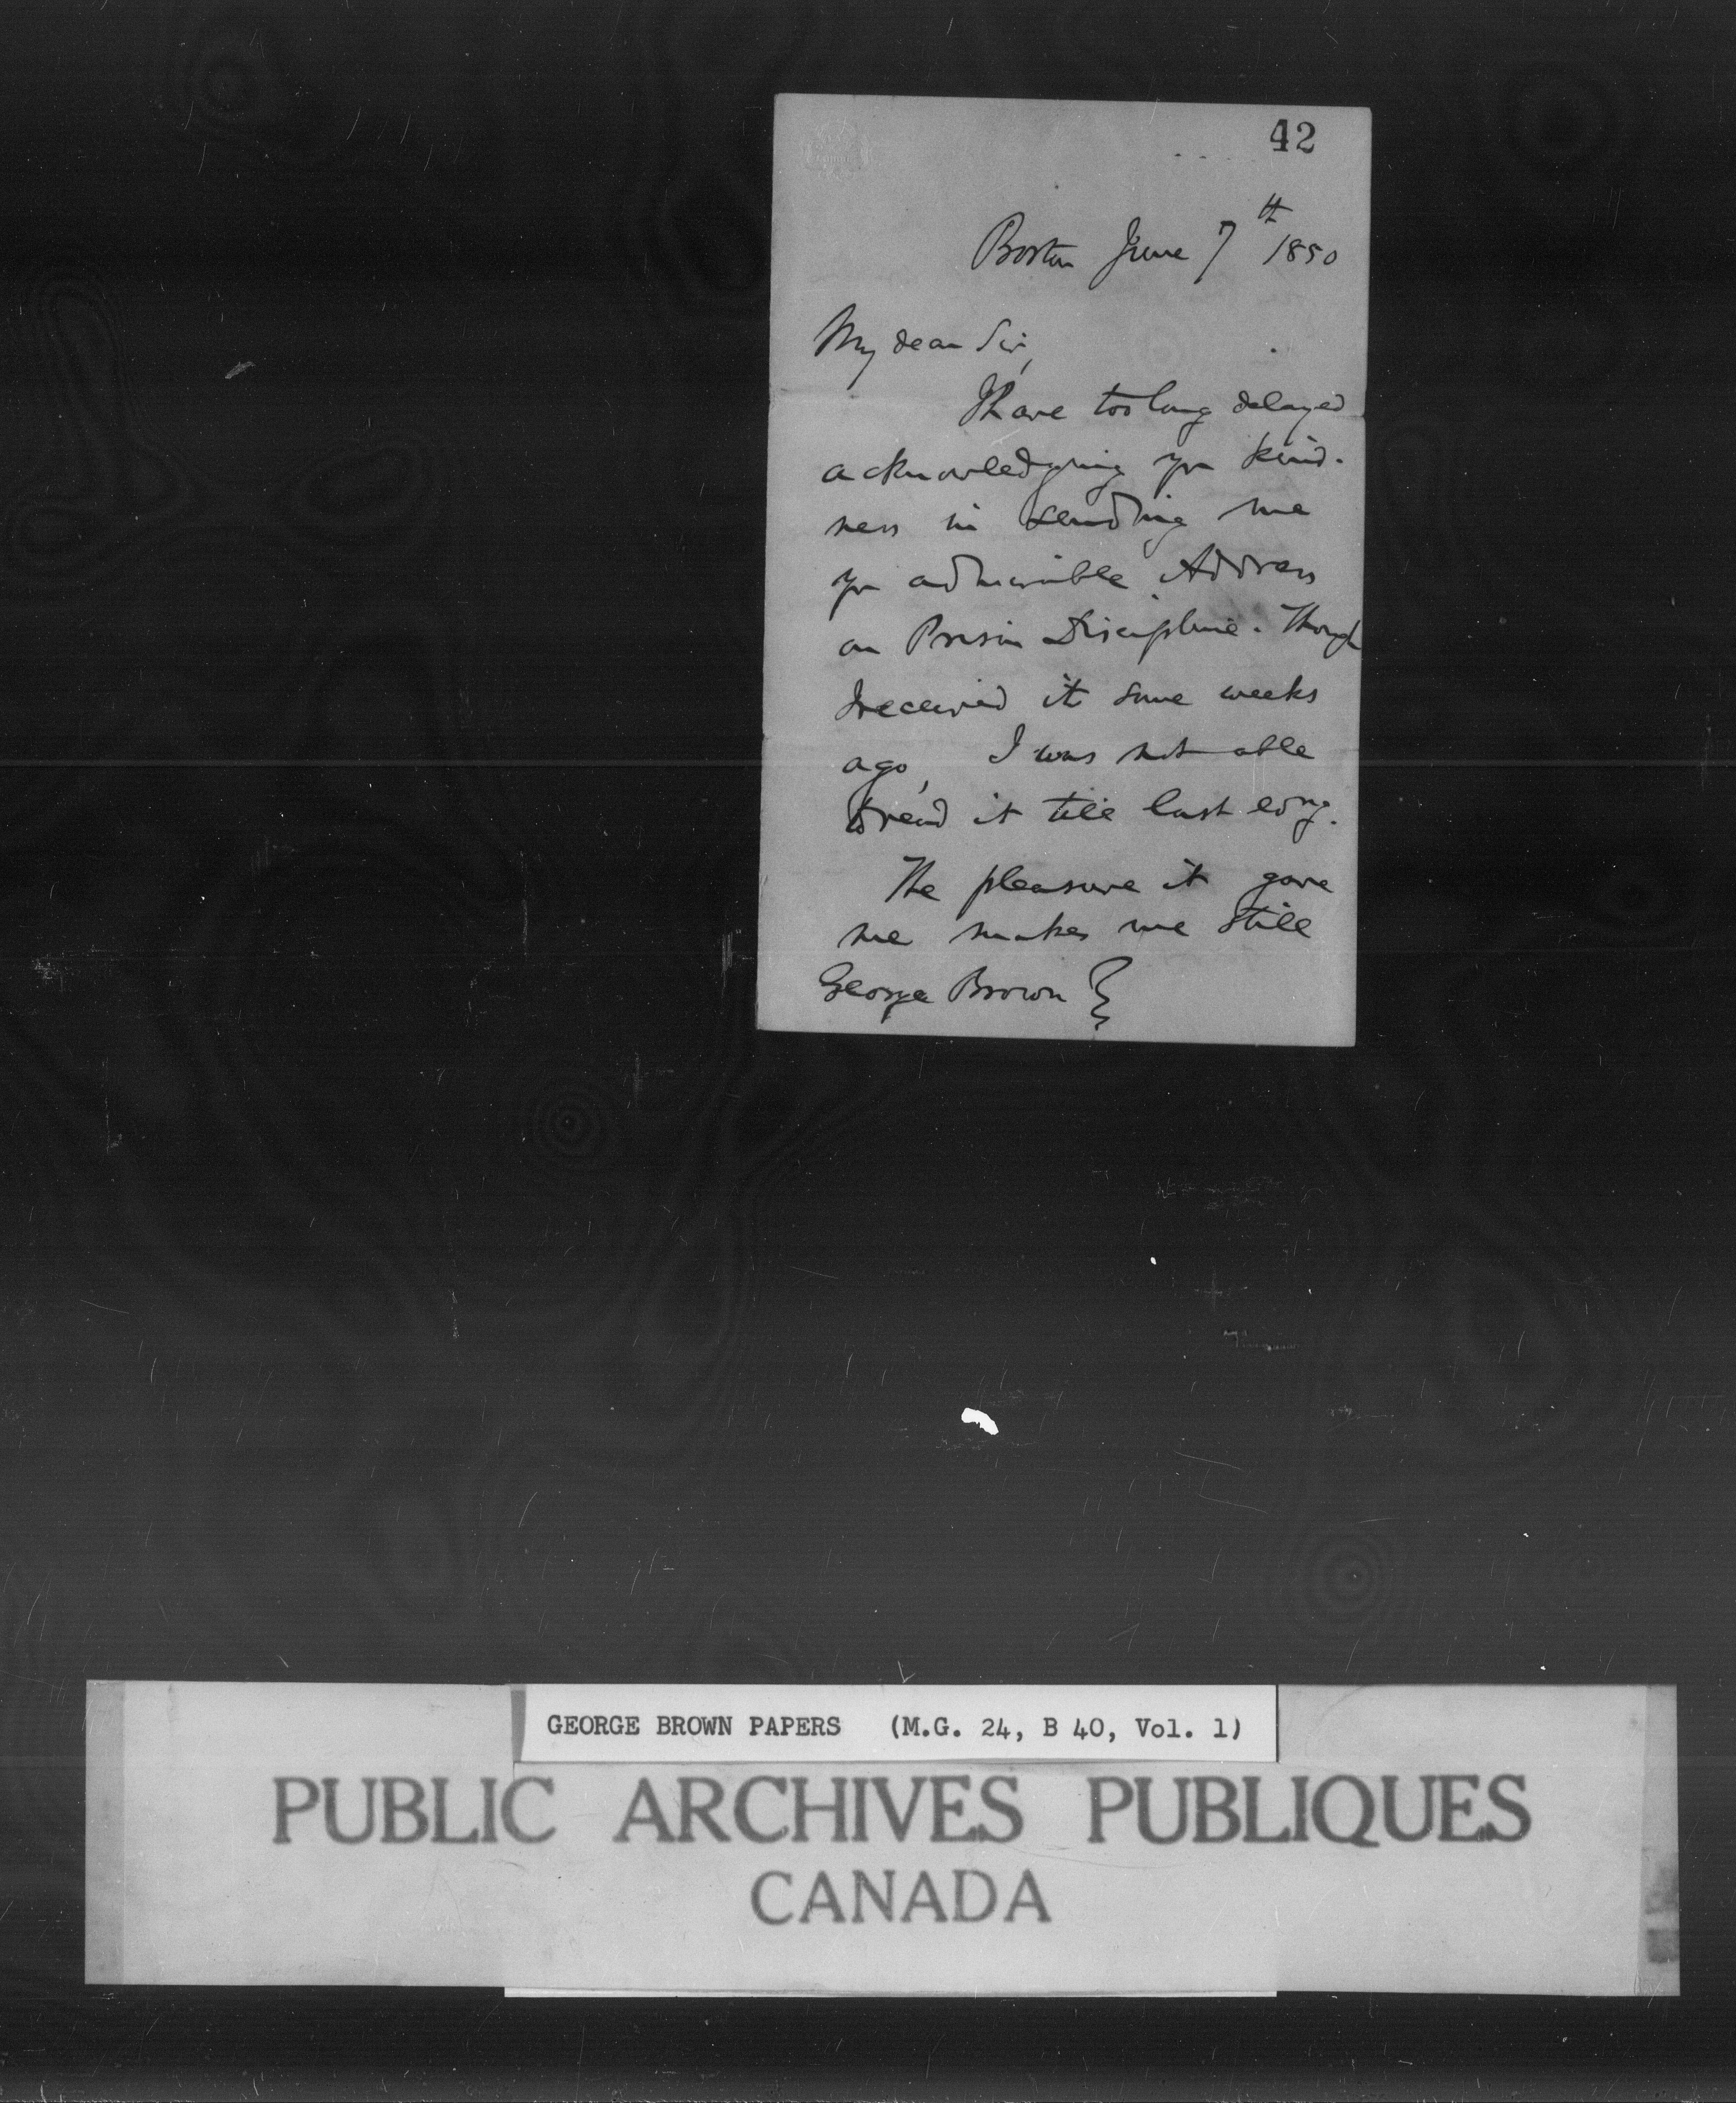 42
Boston June 7th 1850
My dear Sir,
I have too long delayed
acknowledging yr kind-
ness in sending me
yr admirable Address
on Prison Discipline. Though
I received it some weeks
ago, I was not able
to read it till last evng.
The pleasure it gave
me makes me still
George Brown }
GEORGE BROWN PAPERS (M.G. 24, B 40, Vol. 1)
PUBLIC ARCHIVES PUBLIQUES
CANADA